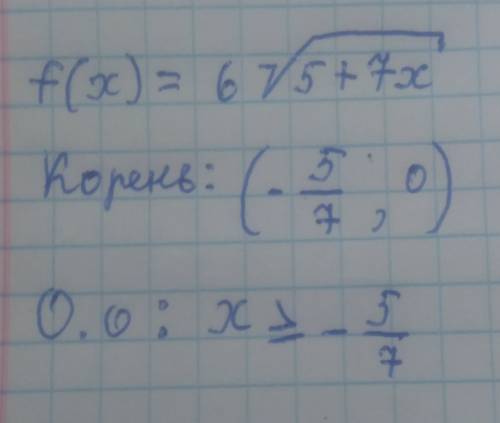 f(x) = 6√5+7x
Корень: (-5/7; 0)
О.о: x ≥ -5/7